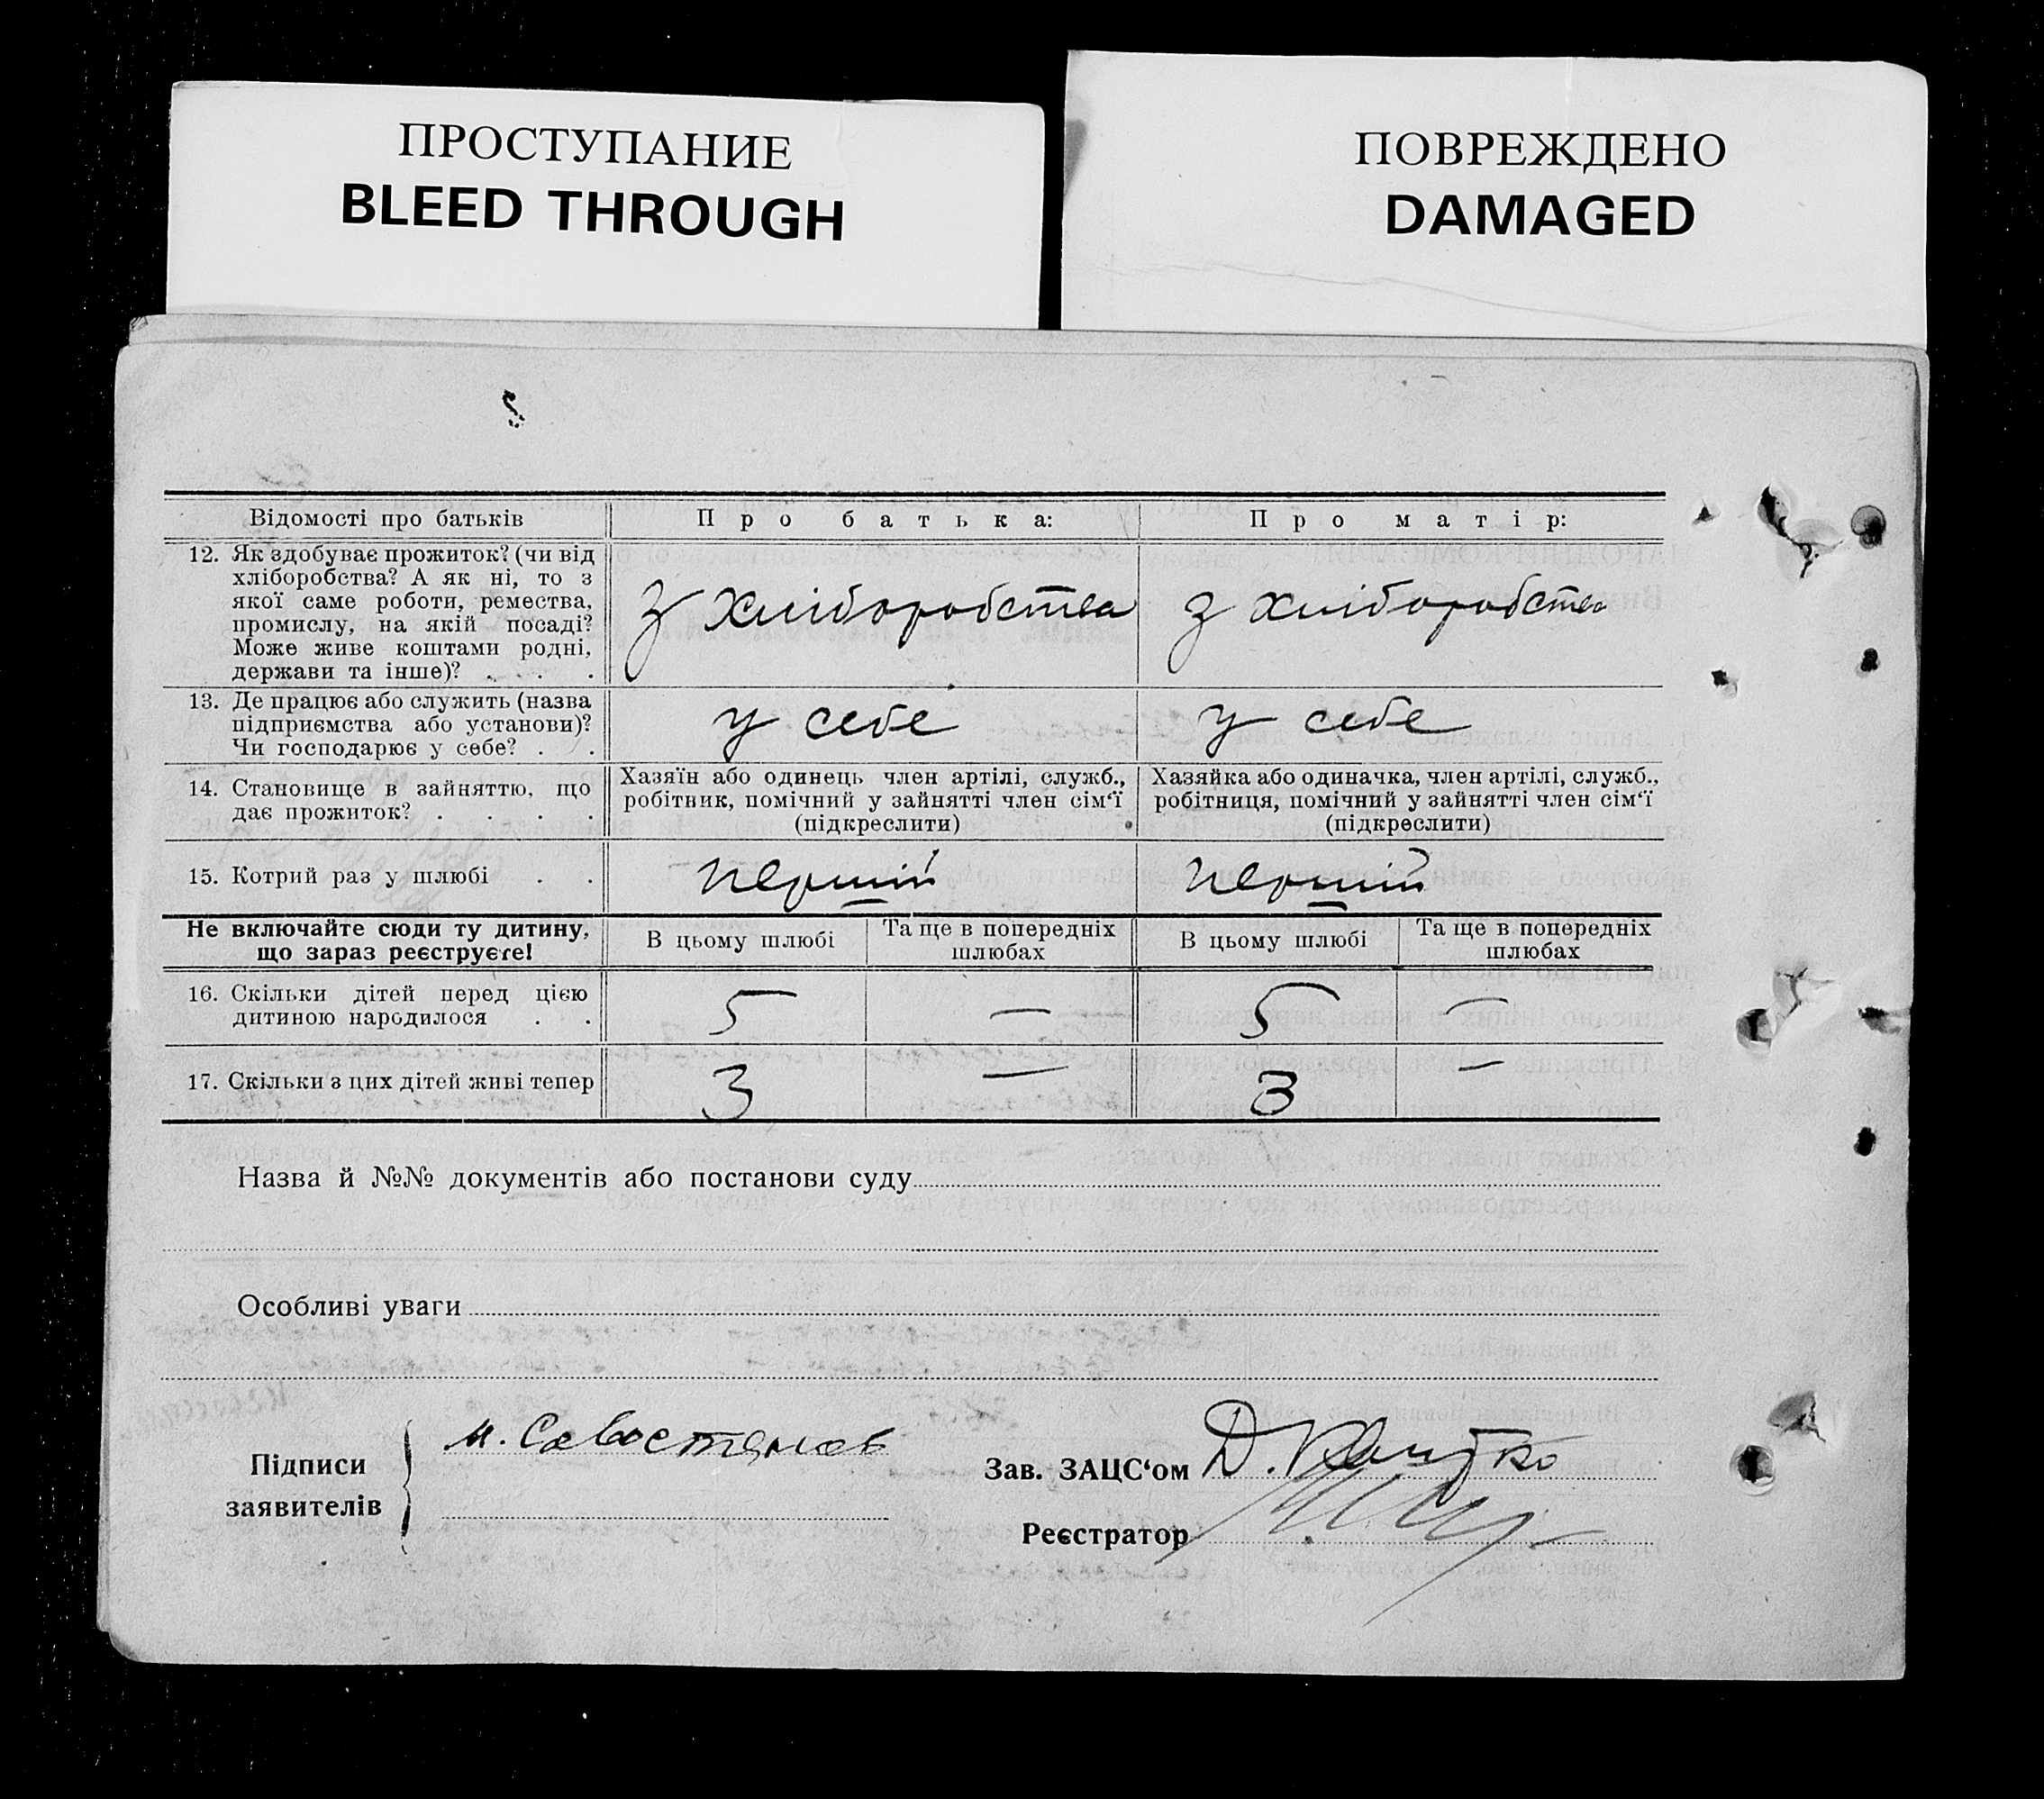 ПРОСТУПАНИЕ
BLEED THROUGH
ПОВРЕЖДЕНО
DAMAGED
Відомості про батьків
Про батька:
Про матір:
12. Як здобуває прожиток? (чи від
хліборобства? А як ні, то з
якої саме роботи, ремества,
промислу, на якій посаді?
Може живе коштами родні,
держави та інше)? . . . .
З хліборобства
З хліборобства
13. Де працює або служить (назва
підприємства або установи)?
Чи господарює у себе? . .
у себе
у себе
14. Становище в зайняттю, що
дає прожиток? . . . .
Хазяїн або одинець член артілі, служб.,
робітник, помічний у зайнятті член сім‘ї
(підкреслити)
Хазяйка або одиначка, член артілі, служб.,
робітниця, помічний у зайнятті член сім‘ї
(підкреслити)
15. Котрий раз у шлюбі . .
перший
перший
Не включайте сюди ту дитину,
що зараз реєструєте!
В цьому шлюбі
Та ще в попередніх
шлюбах
В цьому шлюбі
Та ще в попередніх
шлюбах
16. Скільки дітей перед цією
дитиною народилося . .
5
—
5
—
17. Скільки з цих дітей живі тепер
3
—
3
—
Назва й №№ документів або постанови суду
Особливі уваги
Підписи
заявителів
М. Савостянов
Зав. ЗАЦС‘ом Д.
Реєстратор